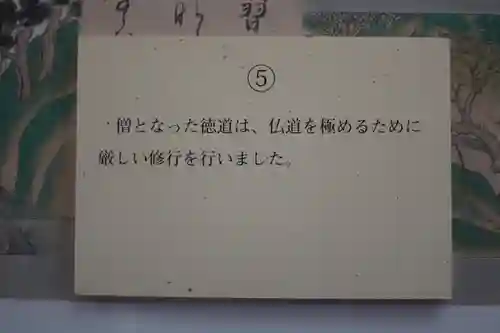 ⑤
僧となった徳道は、仏道を極めるために
厳しい修行を行いました。